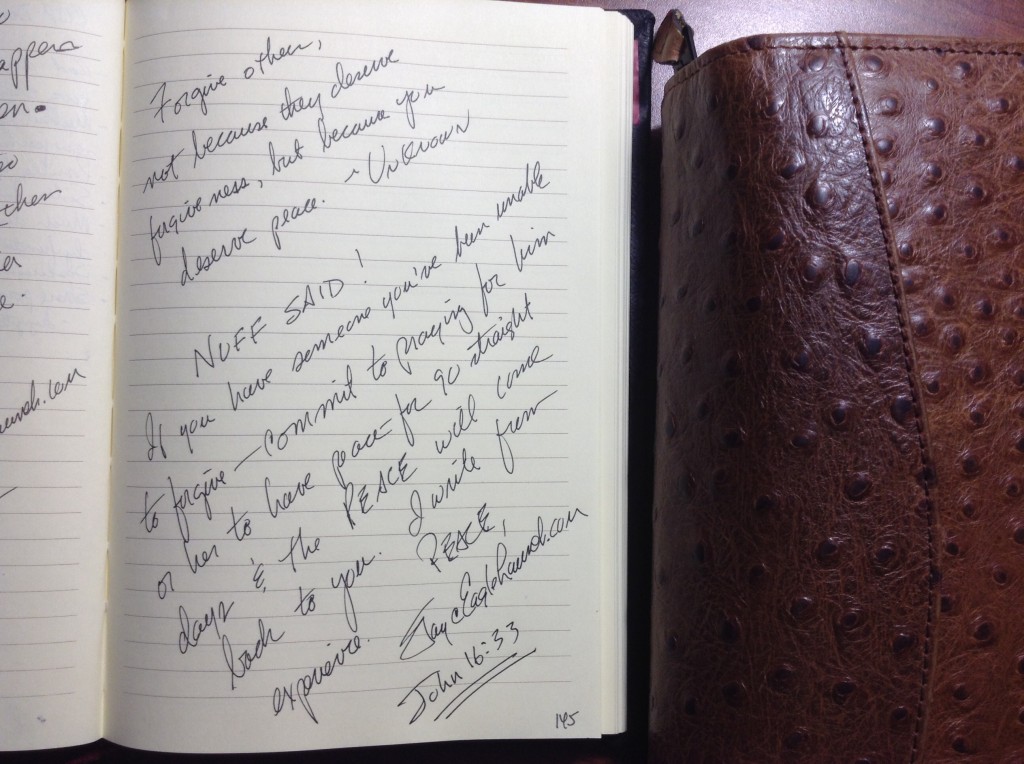 Forgive others,
not because they deserve
forgiveness, but because you
deserve peace. ~ Unknown
NUFF SAID!
If you have someone you've been unable
to forgive — commit to praying for him
or her to have peace for 90 straight
days & the PEACE will come
back to you. I write from
experience.
PEACE,
Jay@EagleLaunch.com
John 16:33
145